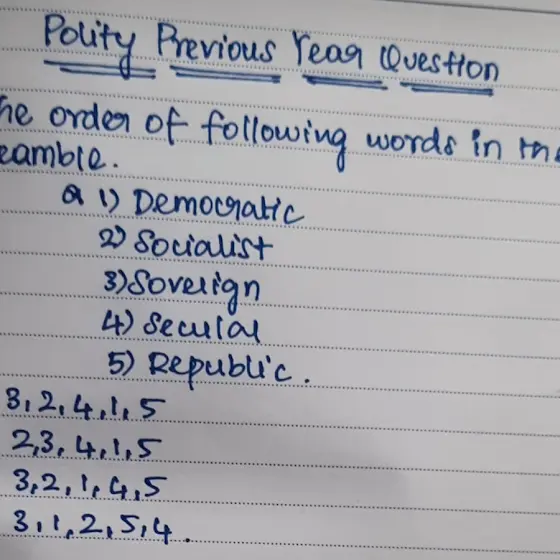 Polity Previous Year Question
he order of following words in the
eamble.
Q 1) Democratic
2) Socialist
3) Soverign
4) Secular
5) Republic.
3,2,4,1,5
2,3,4,1,5
3,2,1,4,5
3,1,2,5,4.